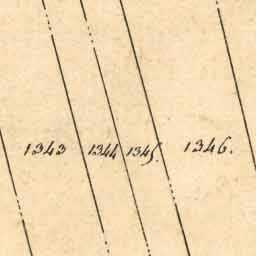 1343 1344 1345. 1346.